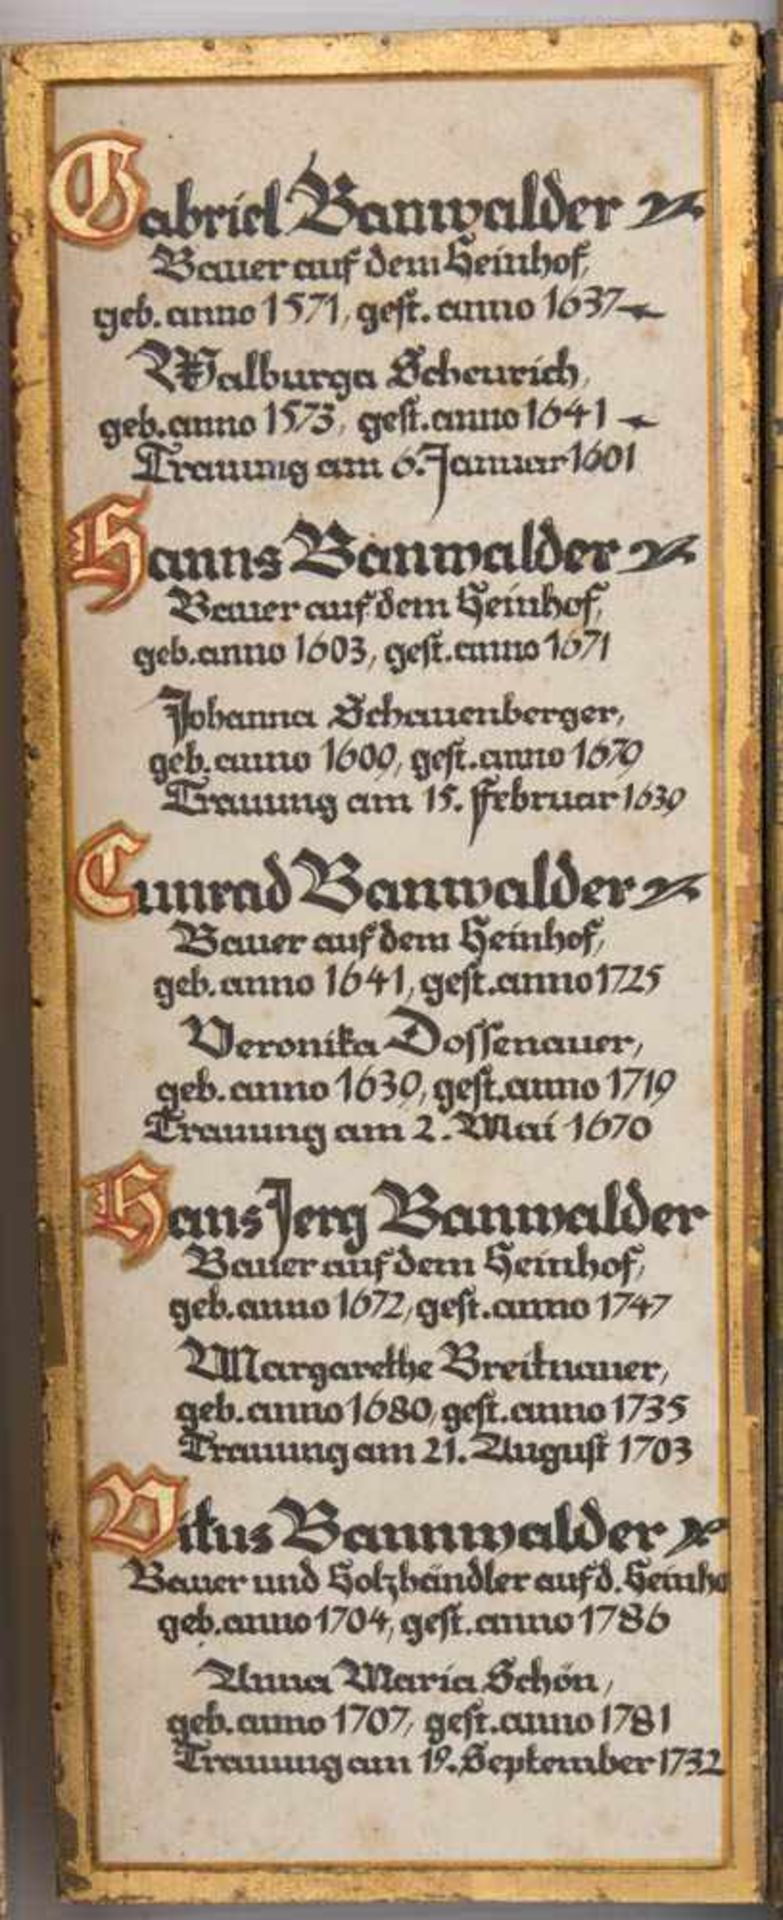 Gabriel Banwalder
Bauer auf dem Heinhof,
geb. anno 1571, gest. anno 1637
Walburga Scheurich,
geb. anno 1573, gest. anno 1641
Trauung am 6. Januar 1601
Hanns Banwalder
Bauer auf dem Heinhof,
geb. anno 1603, gest. anno 1671
Johanna Schauenberger,
geb. anno 1609, gest. anno 1679
Trauung am 15. Februar 1639
Cunrad Banwalder
Bauer auf dem Heinhof,
geb. anno 1641, gest. anno 1725
Veronika Dossenauer,
geb. anno 1639, gest. anno 1719
Trauung am 2. Mai 1670
Hans Jerg Banwalder
Bauer auf dem Heinhof,
geb. anno 1672, gest. anno 1747
Margarethe Breitnauer,
geb. anno 1680, gest. anno 1735
Trauung am 21. August 1703
Vitus Bannwalder
Bauer und Holzhändler auf d. Heinho
geb. anno 1704, gest. anno 1786
Anna Maria Schön,
geb. anno 1707, gest. anno 1781
Trauung am 19. September 1732